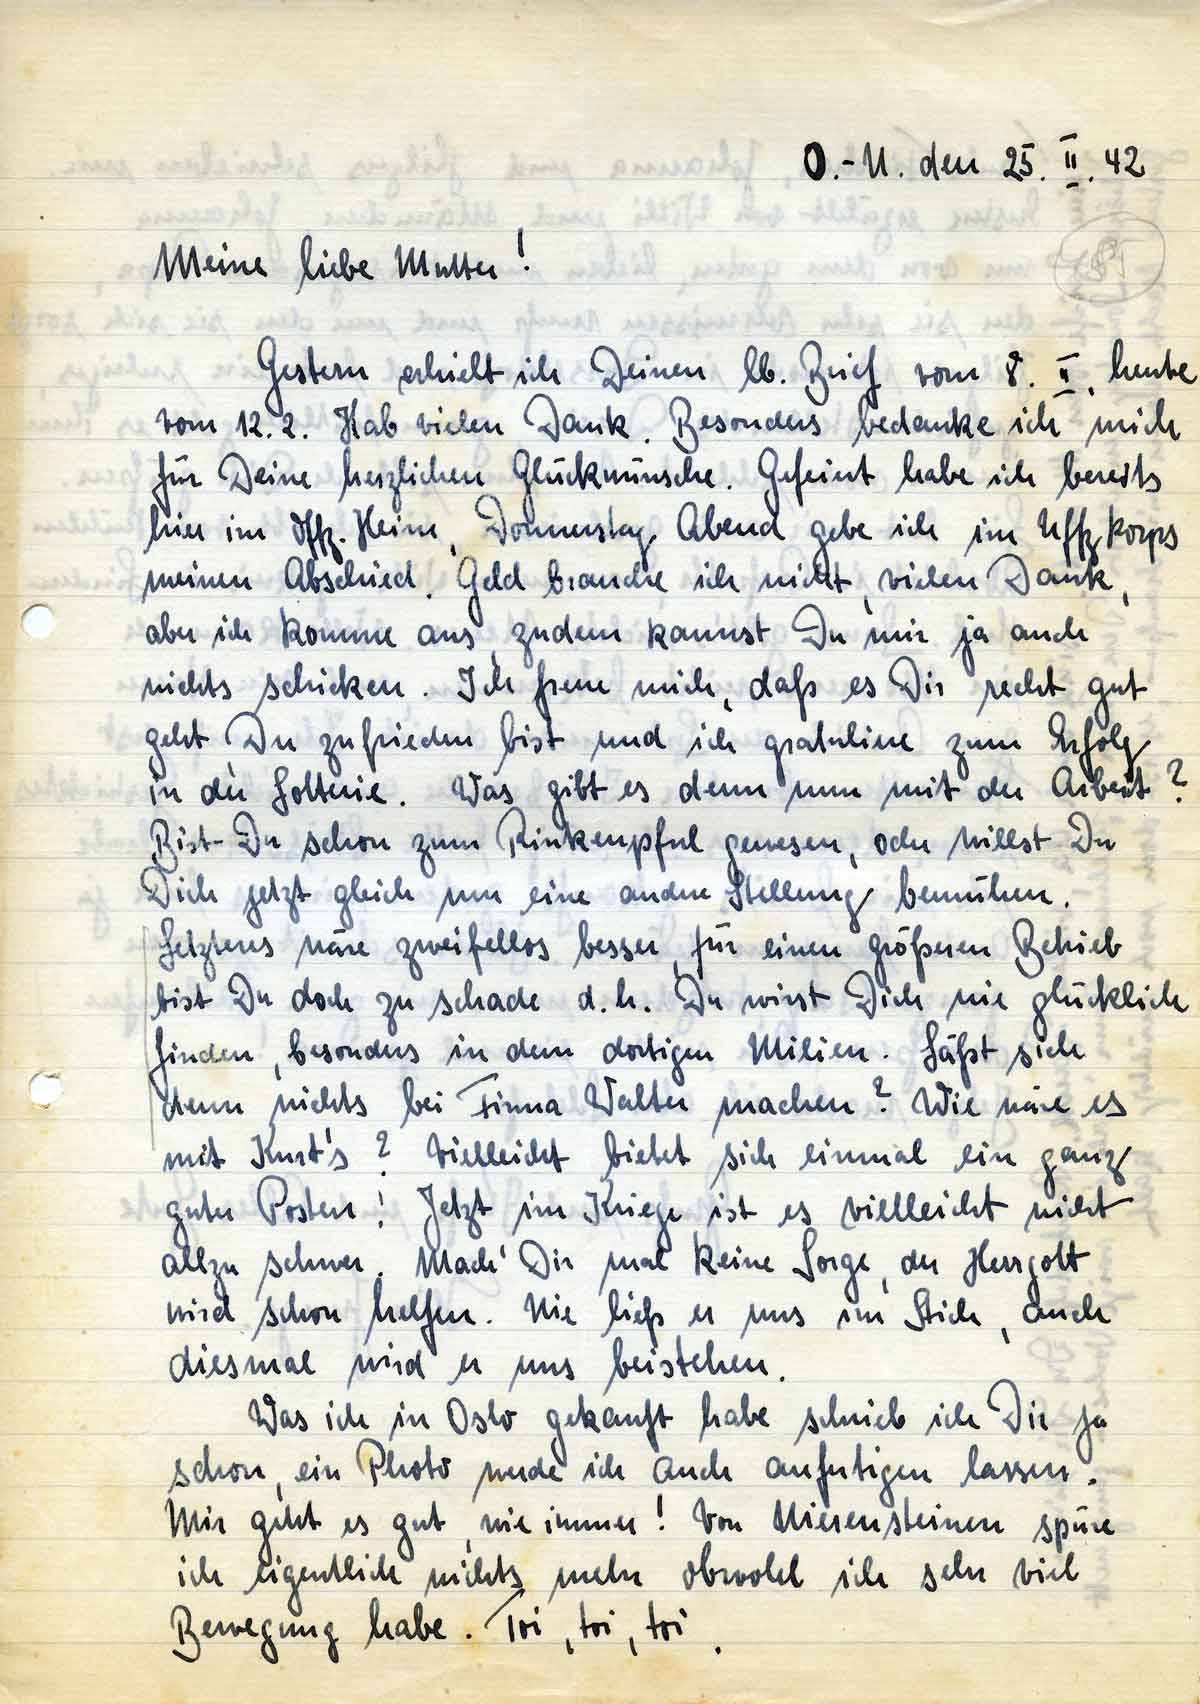 O.-U. den 25. II. 42
Meine liebe Mutter!
Gestern erhielt ich Deinen lb. Brief vom 8. II., heute
vom 12.2. Hab vielen Dank. Besonders bedanke ich mich
für Deine herzlichen Glückwünsche. Gefeiert habe ich bereits
hier im Offz. Heim, Donnerstag Abend gebe ich im Uffz korps
meinen Abschied. Geld brauche ich nicht, vielen Dank,
aber ich komme aus, zudem kannst Du mir ja auch
nichts schicken. Ich freue mich, daß es Dir recht gut
geht Du zufrieden bist und ich gratuliere zum Erfolg
in der Lotterie. Was gibt es denn nun mit der Arbeit?
Bist Du schon zum Rinkenpful gewesen, oder willst Du
Dich jetzt gleich um eine andere Stellung bemühen.
Letzteres wäre zweifellos besser, für einen größeren Betrieb
bist Du doch zu schade d.h. Du wirst Dich nie glücklich
finden, besonders in dem dortigen Milieu. Läßt sich
denn nichts bei Firma Walter machen? Wie wäre es
mit Kurt's? Vielleicht bietet sich einmal ein ganz
guter Posten! Jetzt im Kriege ist es vielleicht nicht
allzu schwer. Mach' Dir mal keine Sorge, der Herrgott
wird schon helfen. Nie ließ er uns im Stich, auch
diesmal wird er uns beistehen.
Was ich in Oslo gekauft habe schrieb ich Dir ja
schon, ein Photo werde ich auch anfertigen lassen.
Mir geht es gut, wie immer! Von Nierensteinen spüre
ich eigentlich nichts mehr obwohl ich sehr viel
Bewegung habe. Toi, toi, toi.